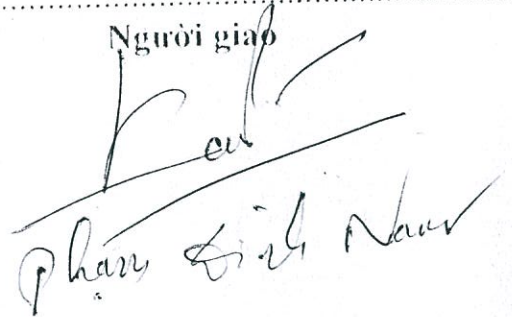 Người giao
Phạm Đình Nam